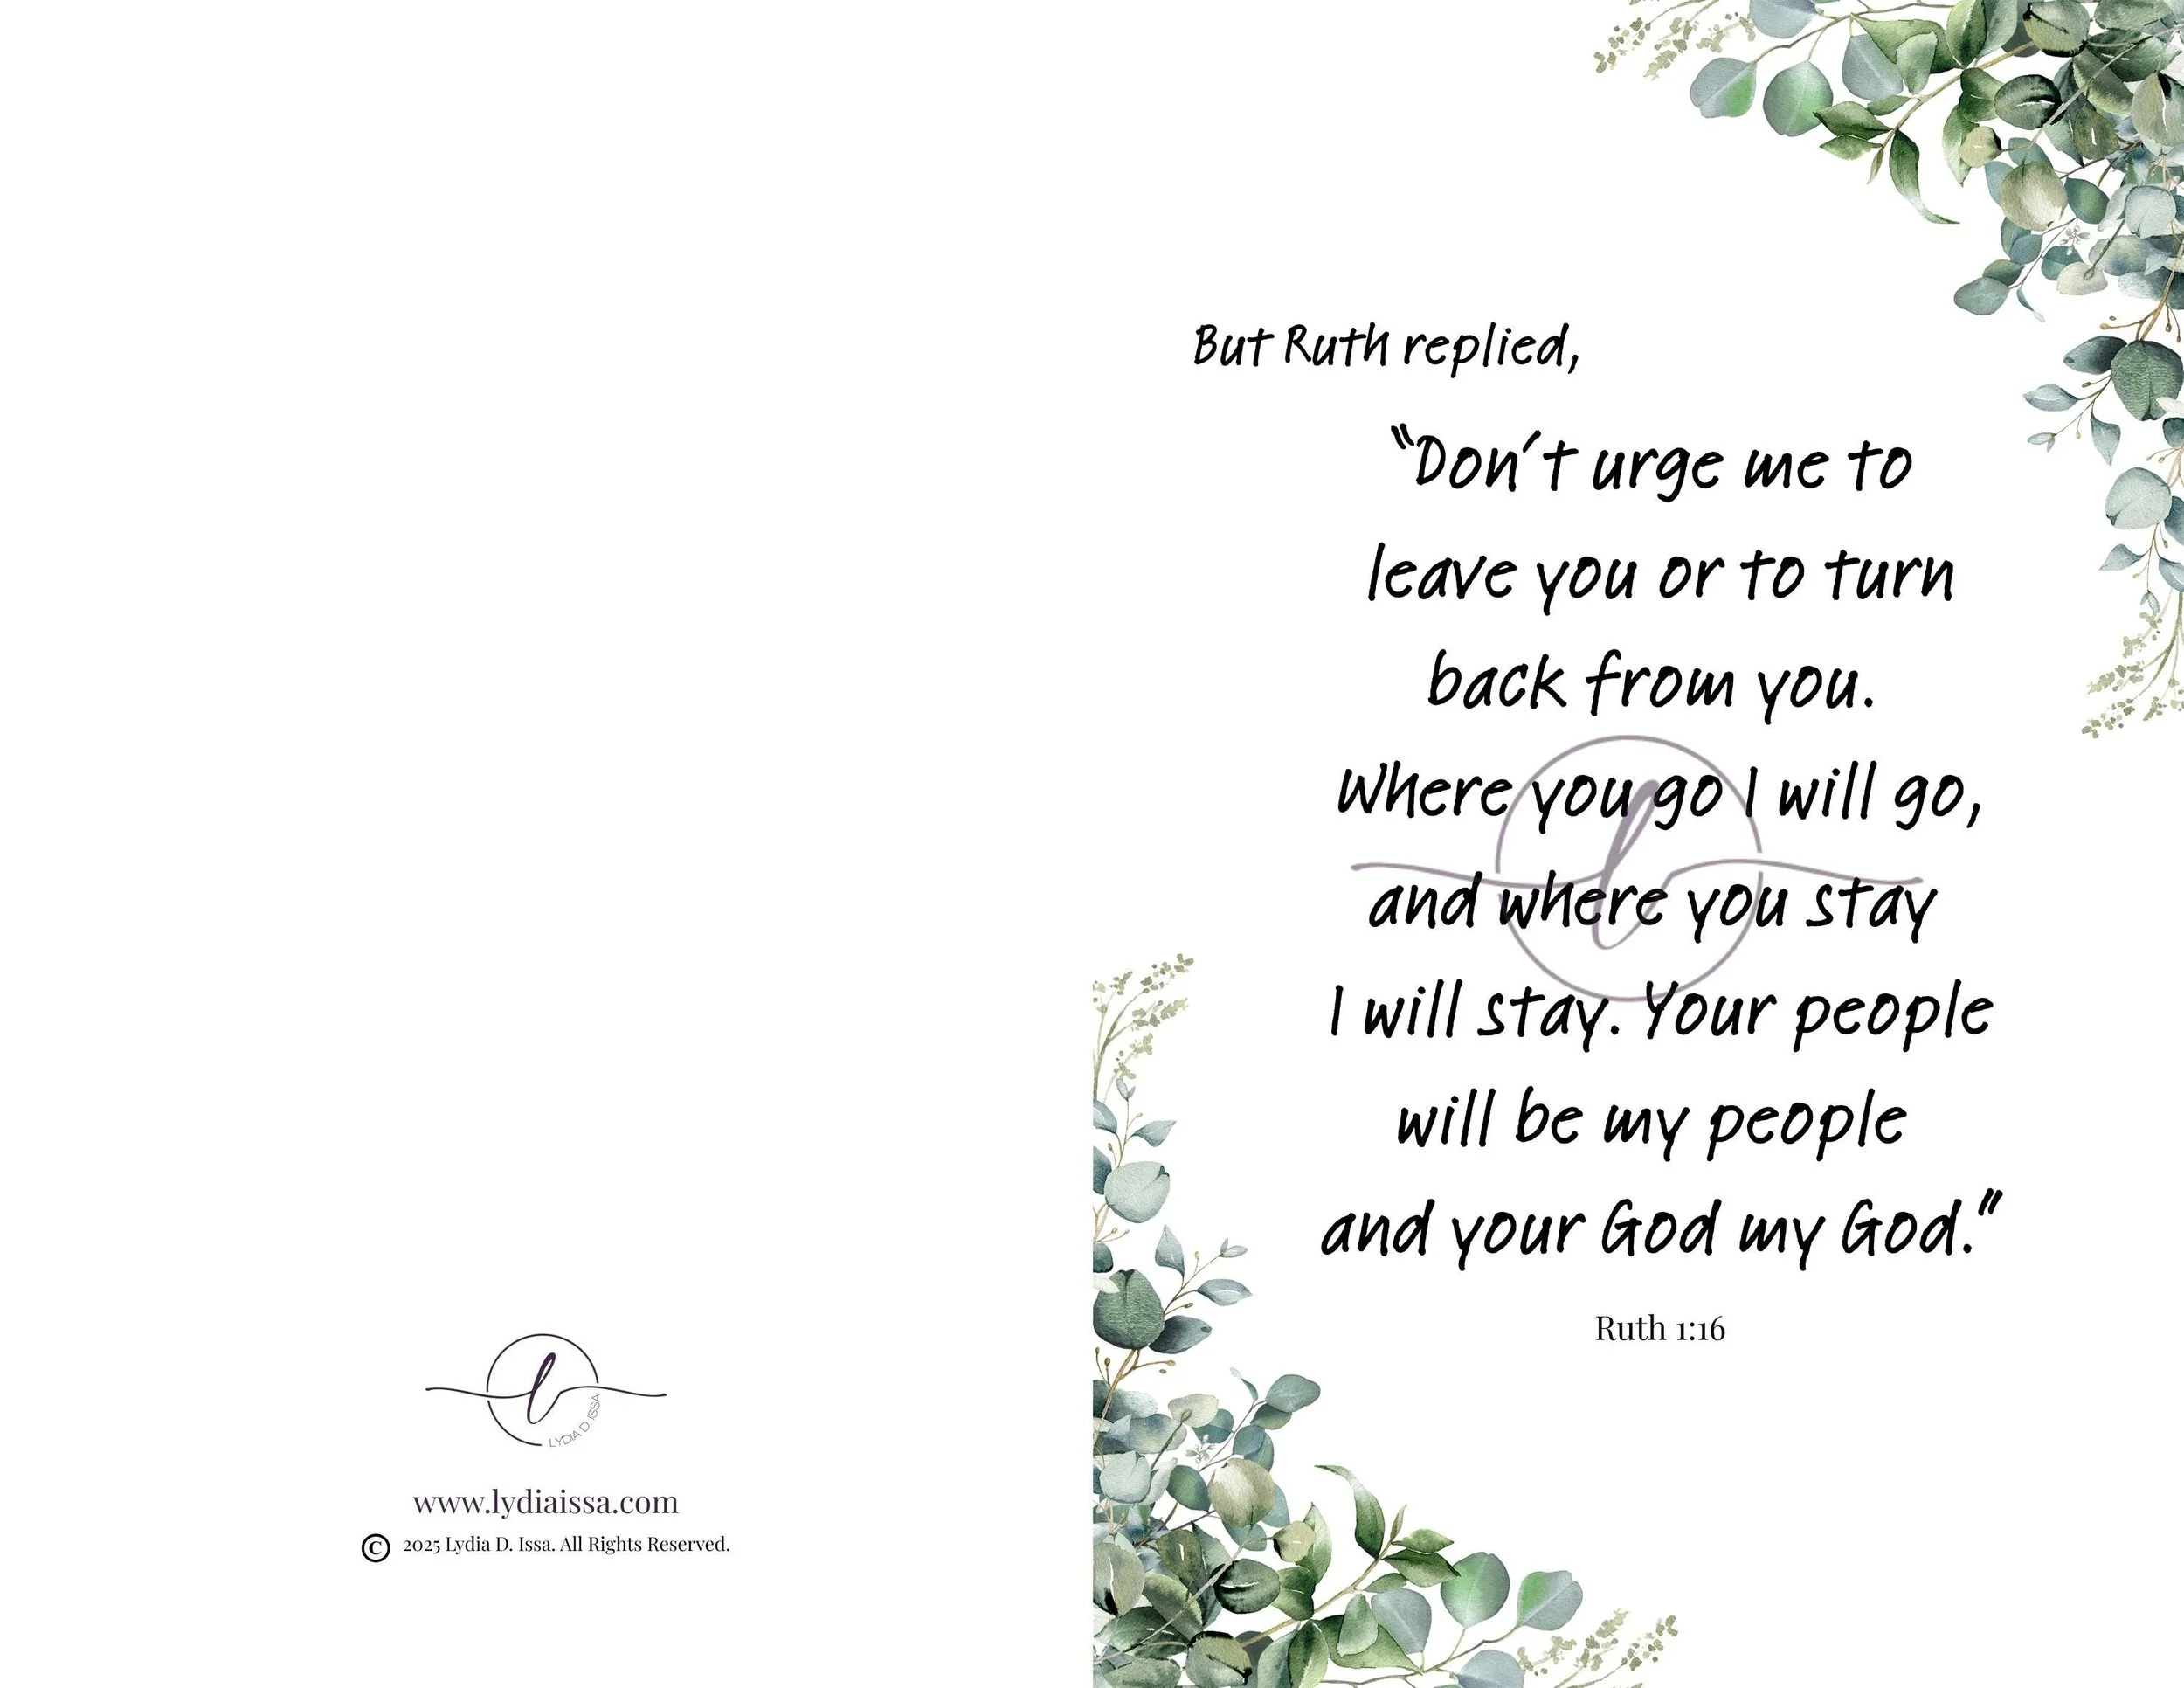 But Ruth replied,
“Don’t urge me to
leave you or to turn
back from you.
Where you go I will go,
and where you stay
I will stay. Your people
will be my people
and your God my God.”
Ruth 1:16
l
l
LYDIA D. ISSA
www.lydiaissa.com
© 2025 Lydia D. Issa. All Rights Reserved.